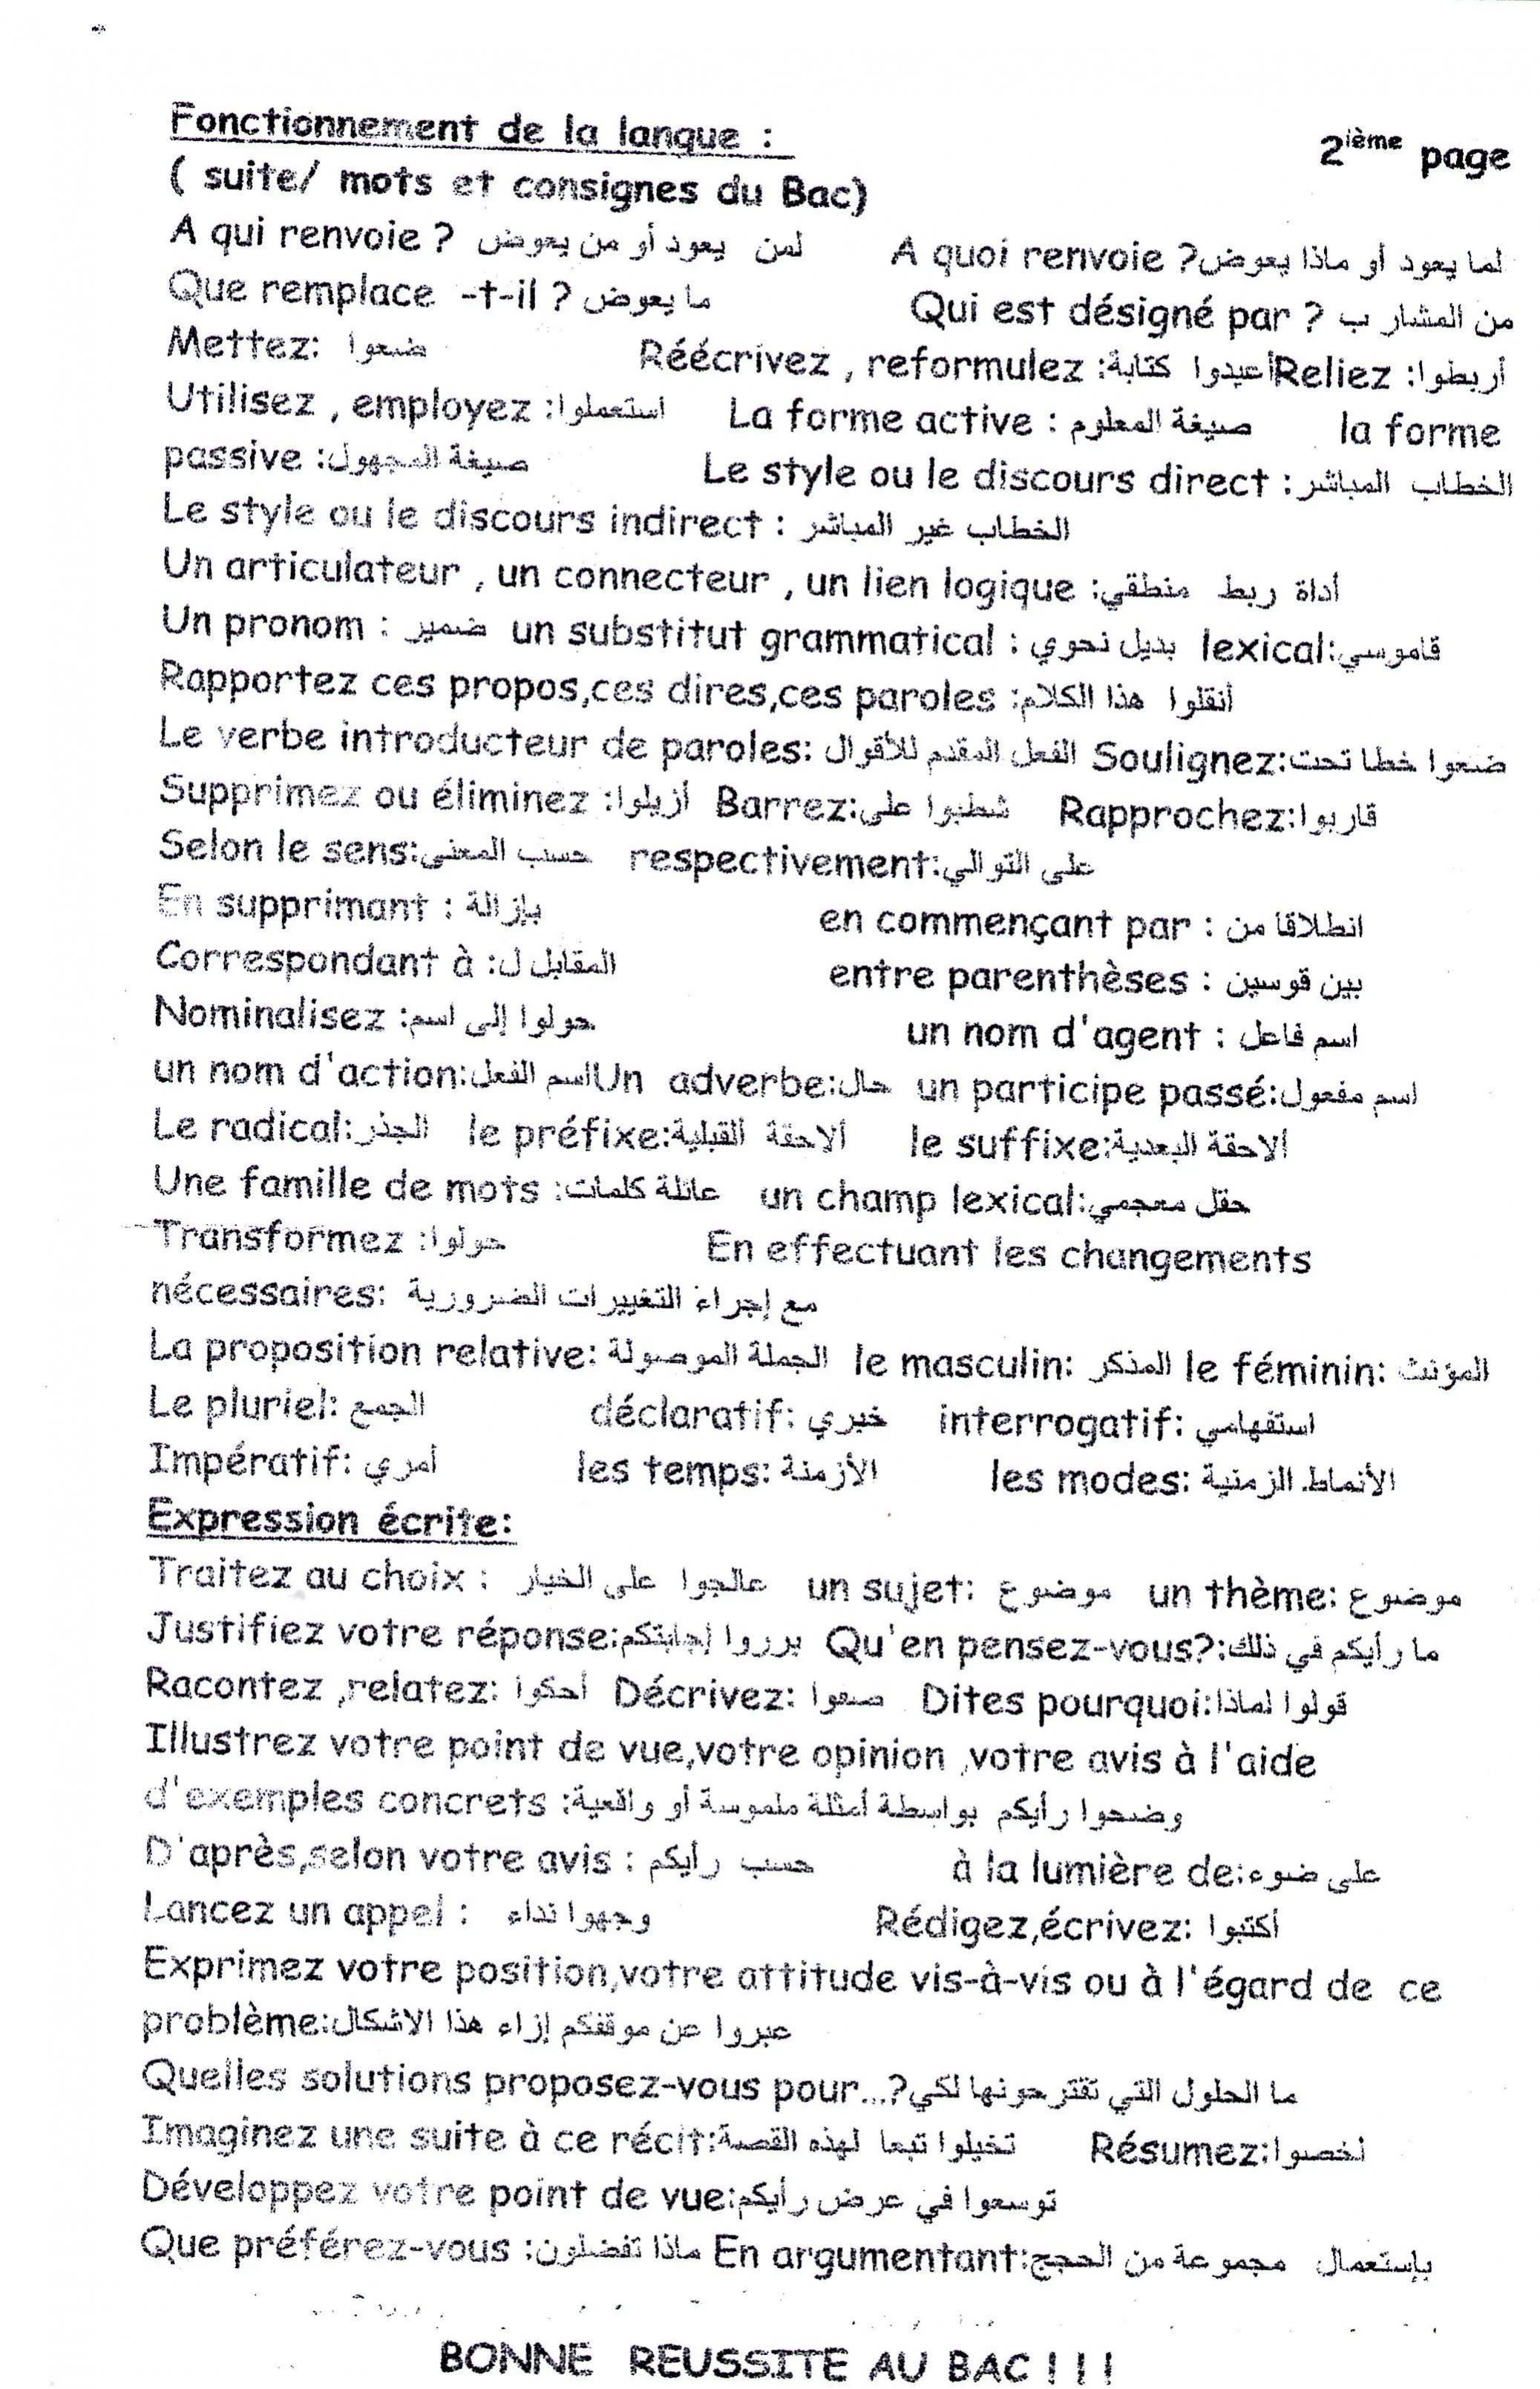 Fonctionnement de la langue :
2ième page
( suite/ mots et consignes du Bac)
A qui renvoie ? لمن يعود أو من يعوض A quoi renvoie ?لما يعود أو ماذا يعوض
Que remplace -t-il ? ما يعوض Qui est désigné par ? من المشار ب
Mettez: ضعوا Réécrivez , reformulez :أعيدوا كتابة Reliez :أربطوا
Utilisez , employez :استعملوا La forme active : صيغة المعلوم la forme
passive :صيغة المجهول Le style ou le discours direct : الخطاب المباشر
Le style ou le discours indirect : الخطاب غير المباشر
Un articulateur , un connecteur , un lien logique :أداة ربط منطقي
Un pronom : ضمير un substitut grammatical : بديل نحوي lexical:قاموسي
Rapportez ces propos,ces dires,ces paroles :أنقلوا هذا الكلام
Le verbe introducteur de paroles: الفعل المقدم للأقوال Soulignez:ضعوا خطا تحت
Supprimez ou éliminez :أزيلوا Barrez:شطبوا على Rapprochez:قاربوا
Selon le sens:حسب المعنى respectivement:على التوالي
En supprimant : بإزالة en commençant par : انطلاقا من
Correspondant à :المقابل ل entre parenthèses : بين قوسين
Nominalisez :حولوا إلى اسم un nom d'agent : اسم فاعل
un nom d'action:اسم الفعل Un adverbe:حال un participe passé:اسم مفعول
Le radical:الجذر le préfixe:ألاحقة القبلية le suffixe:ألاحقة البعدية
Une famille de mots :عائلة كلمات un champ lexical:حقل معجمي
Transformez :حولوا En effectuant les changements
nécessaires: مع إجراء التغييرات الضرورية
La proposition relative: الجملة الموصولة le masculin: المذكر le féminin: المؤنث
Le pluriel: الجمع déclaratif: خبري interrogatif: استفهامي
Impératif: أمري les temps: الأزمنة les modes: الأنماط الزمنية
Expression écrite:
Traitez au choix : عالجوا على الخيار un sujet: موضوع un thème: موضوع
Justifiez votre réponse:برروا إجابتكم Qu'en pensez-vous?:ما رأيكم في ذلك
Racontez ,relatez: أحكوا Décrivez: صفوا Dites pourquoi:قولوا لماذا
Illustrez votre point de vue,votre opinion ,votre avis à l'aide
d'exemples concrets :وضحوا رأيكم بواسطة أمثلة ملموسة أو واقعية
D'après,selon votre avis : حسب رأيكم à la lumière de:على ضوء
Lancez un appel : وجهوا نداء Rédigez,écrivez: أكتبوا
Exprimez votre position,votre attitude vis-à-vis ou à l'égard de ce
problème:عبروا عن موقفكم إزاء هذا الاشكال
Quelles solutions proposez-vous pour...?ما الحلول التي تقترحونها لكي
Imaginez une suite à ce récit:تخيلوا تبعا لهذه القصة Résumez:لخصوا
Développez votre point de vue:توسعوا في عرض رأيكم
Que préférez-vous :ماذا تفضلون En argumentant:بإستعمال مجموعة من الحجج
BONNE REUSSITE AU BAC ! ! !